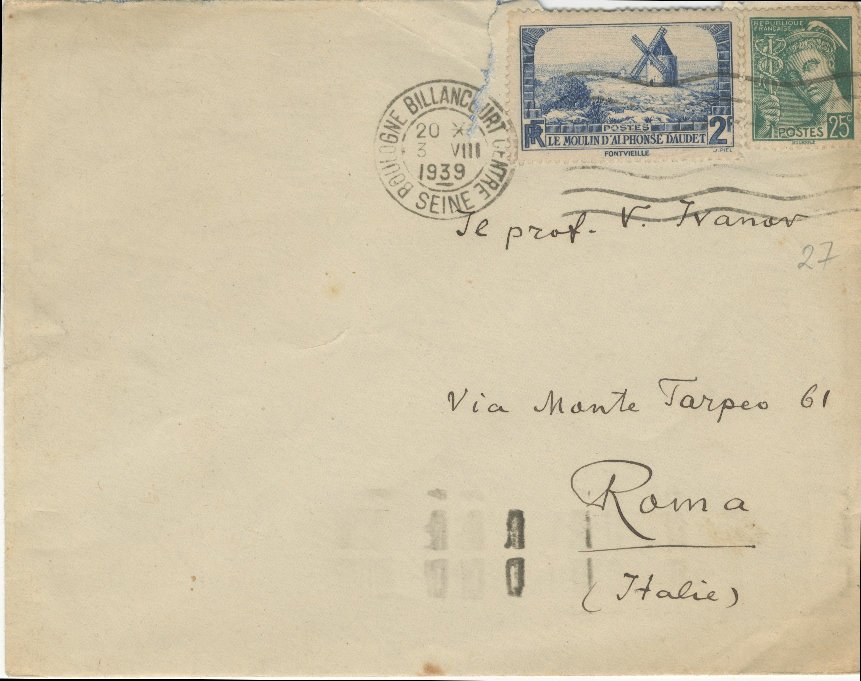 BOULOGNE BILLANCOURT CENTRE
20 X
3 VIII
1939
SEINE
RF
POSTES
LE MOULIN D'ALPHONSE DAUDET
2F
FONTVIEILLE
J. PIEL
REPUBLIQUE
FRANCAISE
POSTES 25c
Il prof. V. Ivanov
27
Via Monte Tarpeo 61
Roma
(Italie)